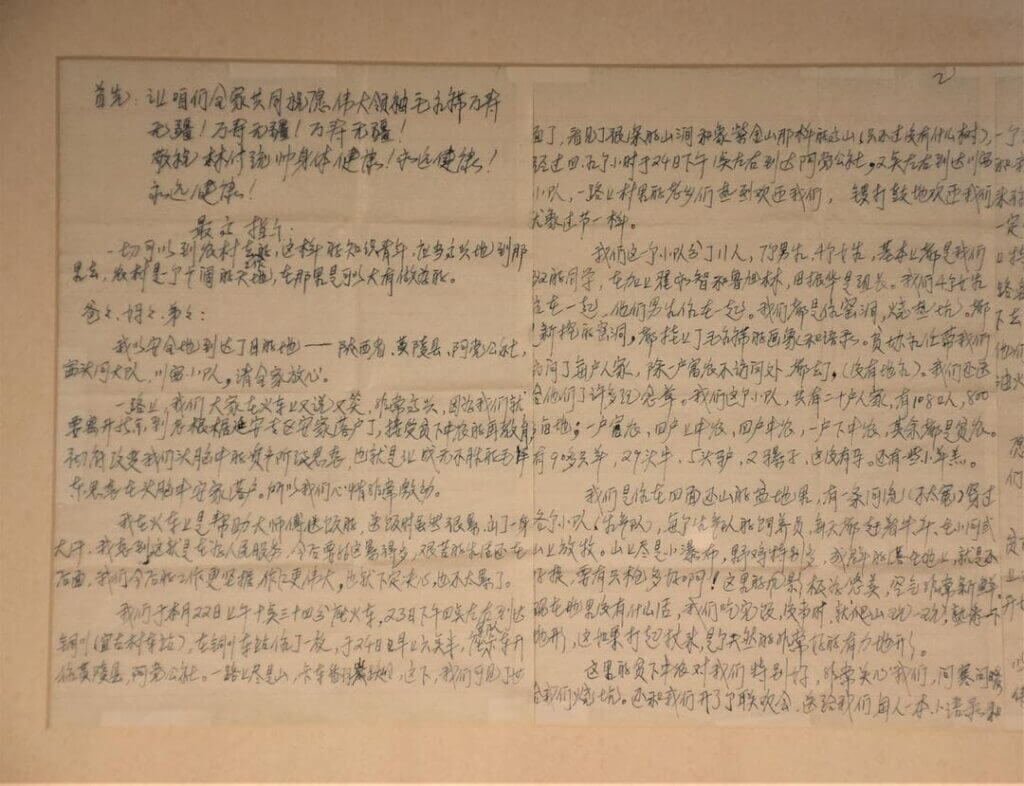 首先：让咱们全家共同祝愿伟大领袖毛主席万寿
无疆！万寿无疆！万寿无疆！
敬祝林付统帅身体健康！永远健康！
永远健康！
最高指示：
一切可以到农村去的，这样的知识青年，应当高兴地到那
里去，农村是一个广阔的天地，在那里是可以大有作为的。
爸爸、妈妈、弟弟：
我以安全地到达了目的地——陕西省，黄陵县，阿党公社，
大队，川留小队，请全家放心。
一路上，我们大家在火车上又说又笑，非常高兴，因为我们就
要离开北京，到老根据地延安去安家落户了，接受贫下中农的再教育，
改变我们头脑中的资产阶级思想，也就是让战无不胜的毛泽
东思想在头脑中安家落户。所以我们心情非常激动。
我在火车上是帮助大师傅送饭的，送饭时虽然很累，出了一身
大汗，我想到这就是在为人民服务，今后要比这累得多，艰苦的生活还在
后面，我们今后的工作更艰苦，更伟大，也就下定决心，也不太累了。
我们于本月22日上午十点三十四分离火车，23日下午四点左右到达
铜川（宜古村车站），在铜川车站住了一夜，于24日早上六点半，汽车开
往黄陵县，阿党公社。一路上尽是山，卡车，这下，我们可见了世
2
面了，看见了很深的山涧和象紫金山那样的高山（只不过没有什么树），
经过四、五个小时于24日下午1点左右到达阿党公社。又点左右到达川留
小队，一路上村里的老乡们热烈欢迎我们，锣打鼓地欢迎我们
尤象过节一样。
我们这个小队分了11人，7个男生，4个女生，基本上都是我们
班的同学，在加上和鲁旭林，田振华是组长。我们4个女生
住在一起，他们男生住在一起。我们都是住窑洞，烧热炕。都
新挖的窑洞，都挂上了毛主席的画象和语录。贫协主任带我们
访问了每户人家，除一户富农不访问外，都去了，（没有地主）。我们还送
给他们了许多纪念章。我们这个小队，共有二十户人家，有108口人，800
亩地；一户富农，四户上中农，四户中农，一户下中农，其余都是贫农。
有90多只羊，29头牛，5头驴，2个骡子，还没有马，还有一些小羊羔。
我们是住在四面环山的盆地里，有一条河流（不太宽）穿过
各个小队（生产队），每个生产队的饲养员，每天都赶着牛羊，在小河或
山上放牧，山上尽是小瀑布，野鸡特别多，就是不
好提，要有只枪多好啊！这里的风景极为优美，空气非常新鲜。
现在地里没有什么活，我们吃完饭，没事时，就爬山玩一玩，熟悉一下
地形，这如果打起杖来，是个天然的非常好的有力地形。
这里的贫下中农对我们特别好，非常关心我们，问寒问暖
给我们烧炕。还和我们开了个联欢会，送给我们每人一本小语录和